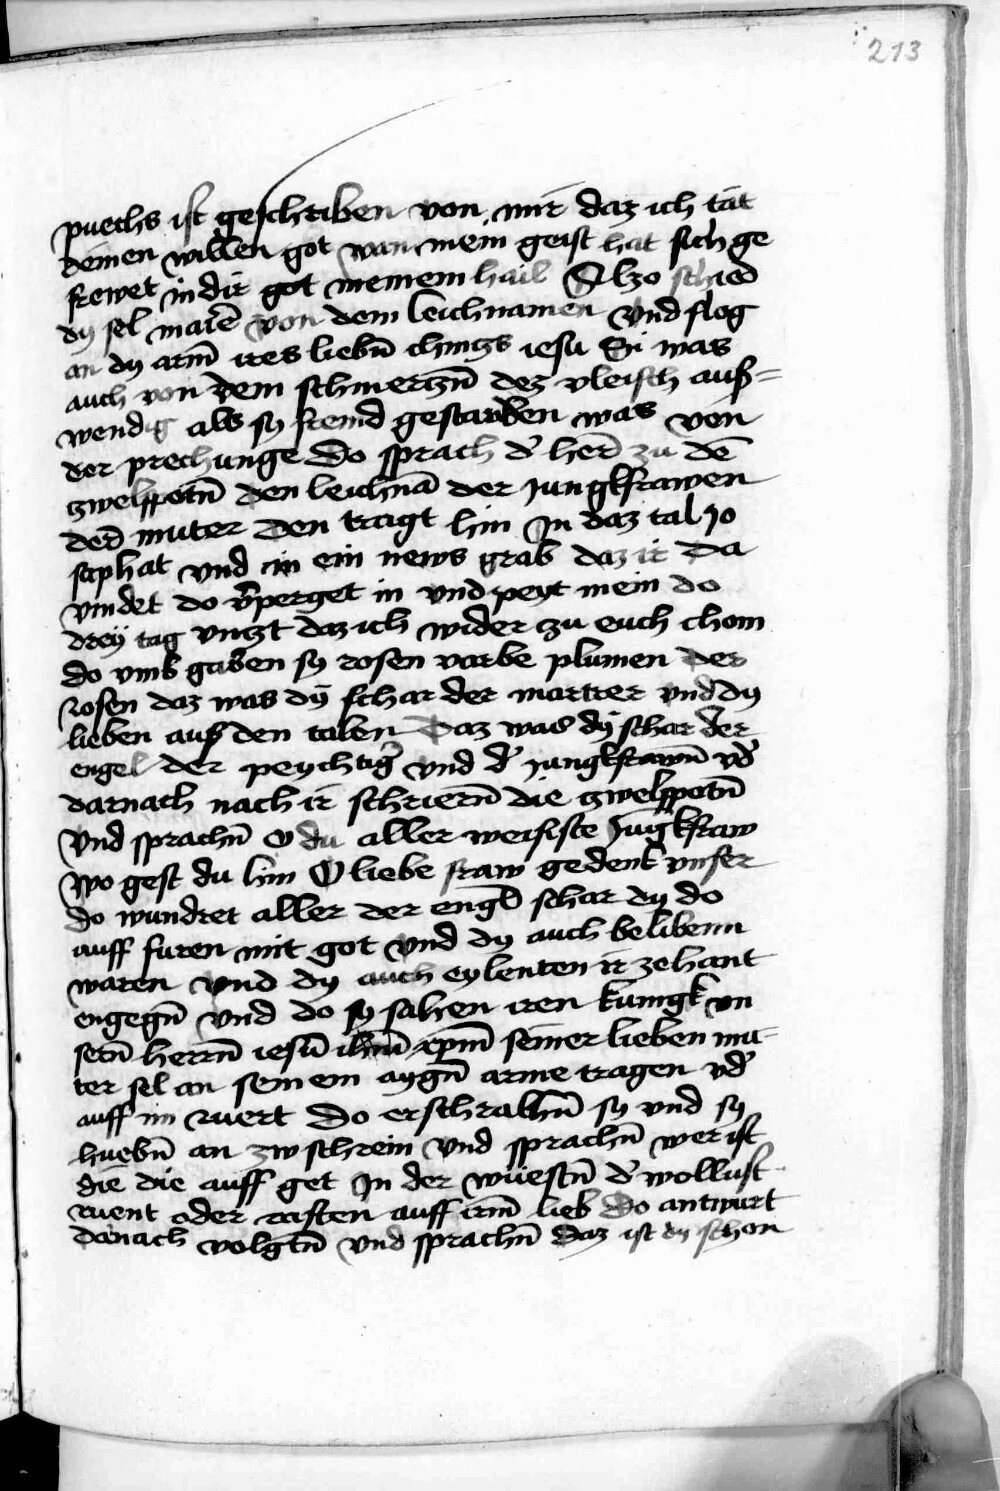 213
puechs ist geschriben von mir daz ich tät
deinen willen got wan mein geist hat sich ge
frewet in dir got meinem hail Alzo schied
dy sel marē von dem leichnamen vnd flog
an dy arm̄ ires liebn̄ chings iesu Si was
auch von dem schmerczn̄ dez vleisch auß=
wendig als sy fremd gestarben was von
der prechunge Do sprach d' her̄ zu dē
zwelfpotn̄ den leichnā der Jungkfrawen
der muter den tragt hin In daz tal Jo
saphat vnd in ein news grab daz ir da
vindet do v̄perget in vnd peyt mein do
dreÿ tag vnczt daz ich wider zu euch chom
do vmb gaben sy rosen varbe plumen der
rosen daz was dÿ schar der martrer vnd dy
lieben auß den talen Daz was dÿ schar der
engel der peychtig' vnd d' Jungkfrawn̄ vd'
darnach nach ir schriern̄ die zwelfpotn̄
vnd sprachn̄ O du aller weisiste Jūgkfraw
wo gest du hin O liebe fraw gedenk vnser
do wundret aller der engl schar dy do
auff furen mit got vnd dy auch belibenn
waren vnd dy auch eylenten ir zehant
engegn̄ vnd do sy sahen iren kunigk vn
sern̄ herrn̄ iesū xpm̄ seiner lieben mu-
ter sel an seinem aygn̄ arme tragen vd'
auff im ruert Do erschrakhn̄ sy vnd sy
huebn̄ an zw schrein vnd sprachn̄ wer ist
die die auff get In der wüestn̄ d' wollust
ruent oder rasten auff irm̄ lieb Do antwurt
danach volgtn̄ vnd sprachn̄ daz ist dy schon